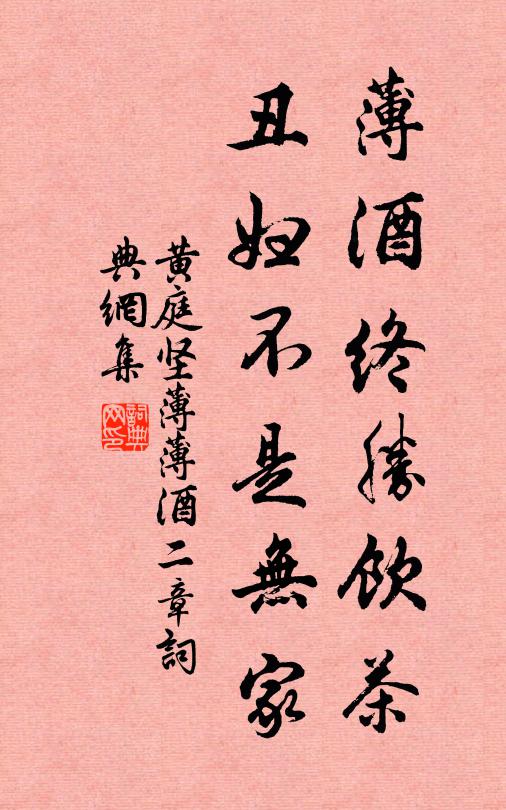 薄酒终勝饮茶
丑妇不是無家
黄庭坚薄薄酒二章詞
典網集
詞典网印